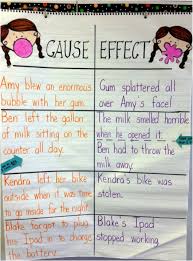 CAUSE
EFFECT
Amy blew an enormous
bubble with her gum.
Gum splattered all
over Amy's face!
Ben left the gallon
of milk sitting on the
counter all day.
The milk smelled horrible
when he opened it.
Ben had to throw the
milk away.
Kendra left her bike
outside when it was time
to go inside for the night.
Kendra's bike was
stolen.
Blake forgot to plug
his Ipad in to charge
the battery.
Blake's Ipad
stopped working.